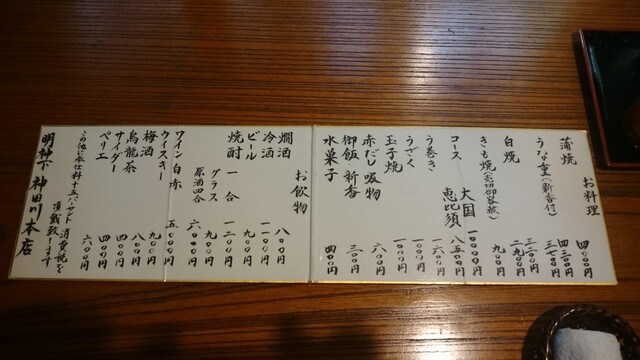 お料理
蒲焼
四〇〇〇円
四三〇〇円
うな重(新香付)
三七〇〇円
三二〇〇円
白焼
二九〇〇円
きも焼
九〇〇円
コース 大国
一〇〇〇〇円
恵比須
八五〇〇円
う巻き
一六〇〇円
うざく
一〇〇〇円
玉子焼
一〇〇〇円
赤だし 吸物
六〇〇円
御飯 新香
三〇〇円
水菓子
四〇〇円
お飲物
燗酒
八〇〇円
冷酒
一〇〇〇円
ビール
九〇〇円
焼酎 一合
一二〇〇円
グラス
九〇〇円
原酒四合
六〇〇〇円
ワイン 白 赤
五〇〇〇円
ウイスキー
九〇〇円
梅酒
八〇〇円
烏龍茶
四〇〇円
サイダー
四〇〇円
ペリエ
六〇〇円
この他に奉仕料十五パーセント 消費税を
頂戴致します
明神下 神田川本店